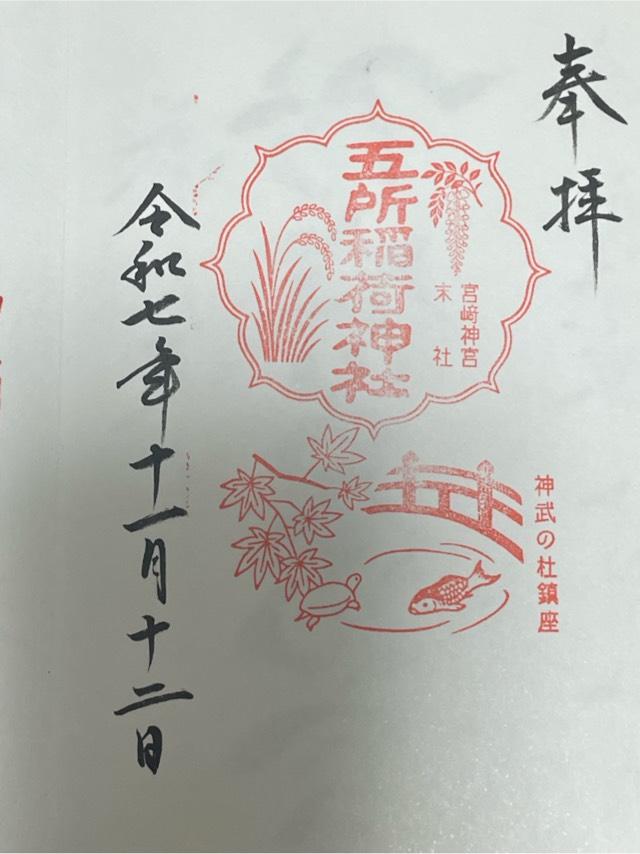 奉拝
五所稲荷神社
宮﨑神宮
末社
神武の杜鎮座
令和七年十一月十二日